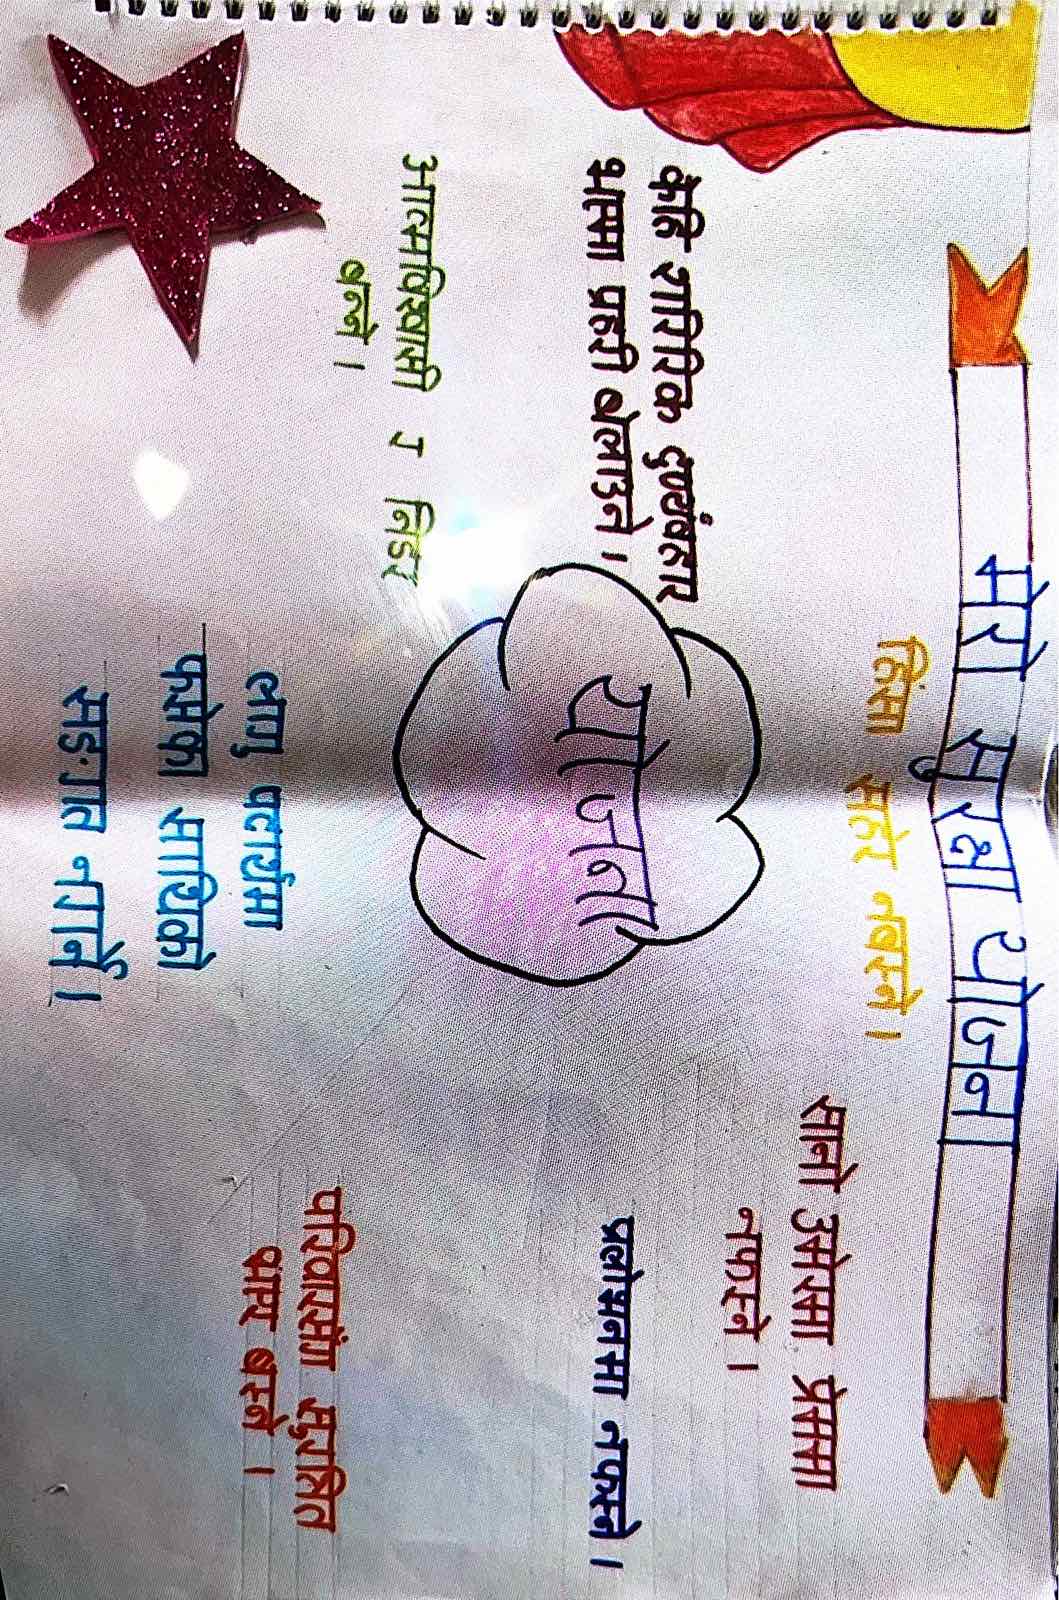 मेरो सुरक्षा योजना
हिंसा सहेर नबस्ने।
सानो उमेरमा प्रेममा
नफस्ने।
केहि शारिरिक दुर्व्यवहार
भएमा प्रहरी बोलाउने।
योजना
प्रलोभनमा नफस्ने।
आत्मविश्वासी र निडर
बन्ने।
परिवारसंग सुरक्षित
भएर बस्ने।
लागु पदार्थमा
फसेका साथिको
सङ्गत नगर्ने।